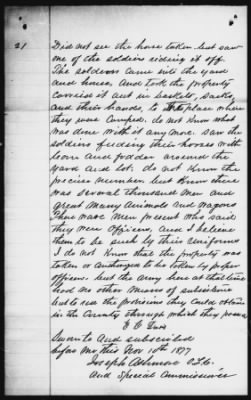 21 Did not see the horse taken but saw
one of the soldiers riding it off.
The soldiers came into the yard
and house, and took the property
carried it out in baskets, sacks,
and their hands, to the place where
they were camped. do not know what
was done with it any more. saw the
soldiers feeding their horses with
corn and fodder around the
yard and lot. do not know the
precise number. but know there
was several thousand men and
great many animals and wagons
There were men present who said
they were officers, and I believe
them to be such by their uniforms
I do not know that the property was
taken or authorized to be taken by proper
officers. but the army here at that time
had no other means of subsistence
but to use the provisions they could obtain
in the County through which they passed
E C
Sworn to and subscribed
before me this Nov 10th 1877
Joseph Ashmore
and Special Commissioner